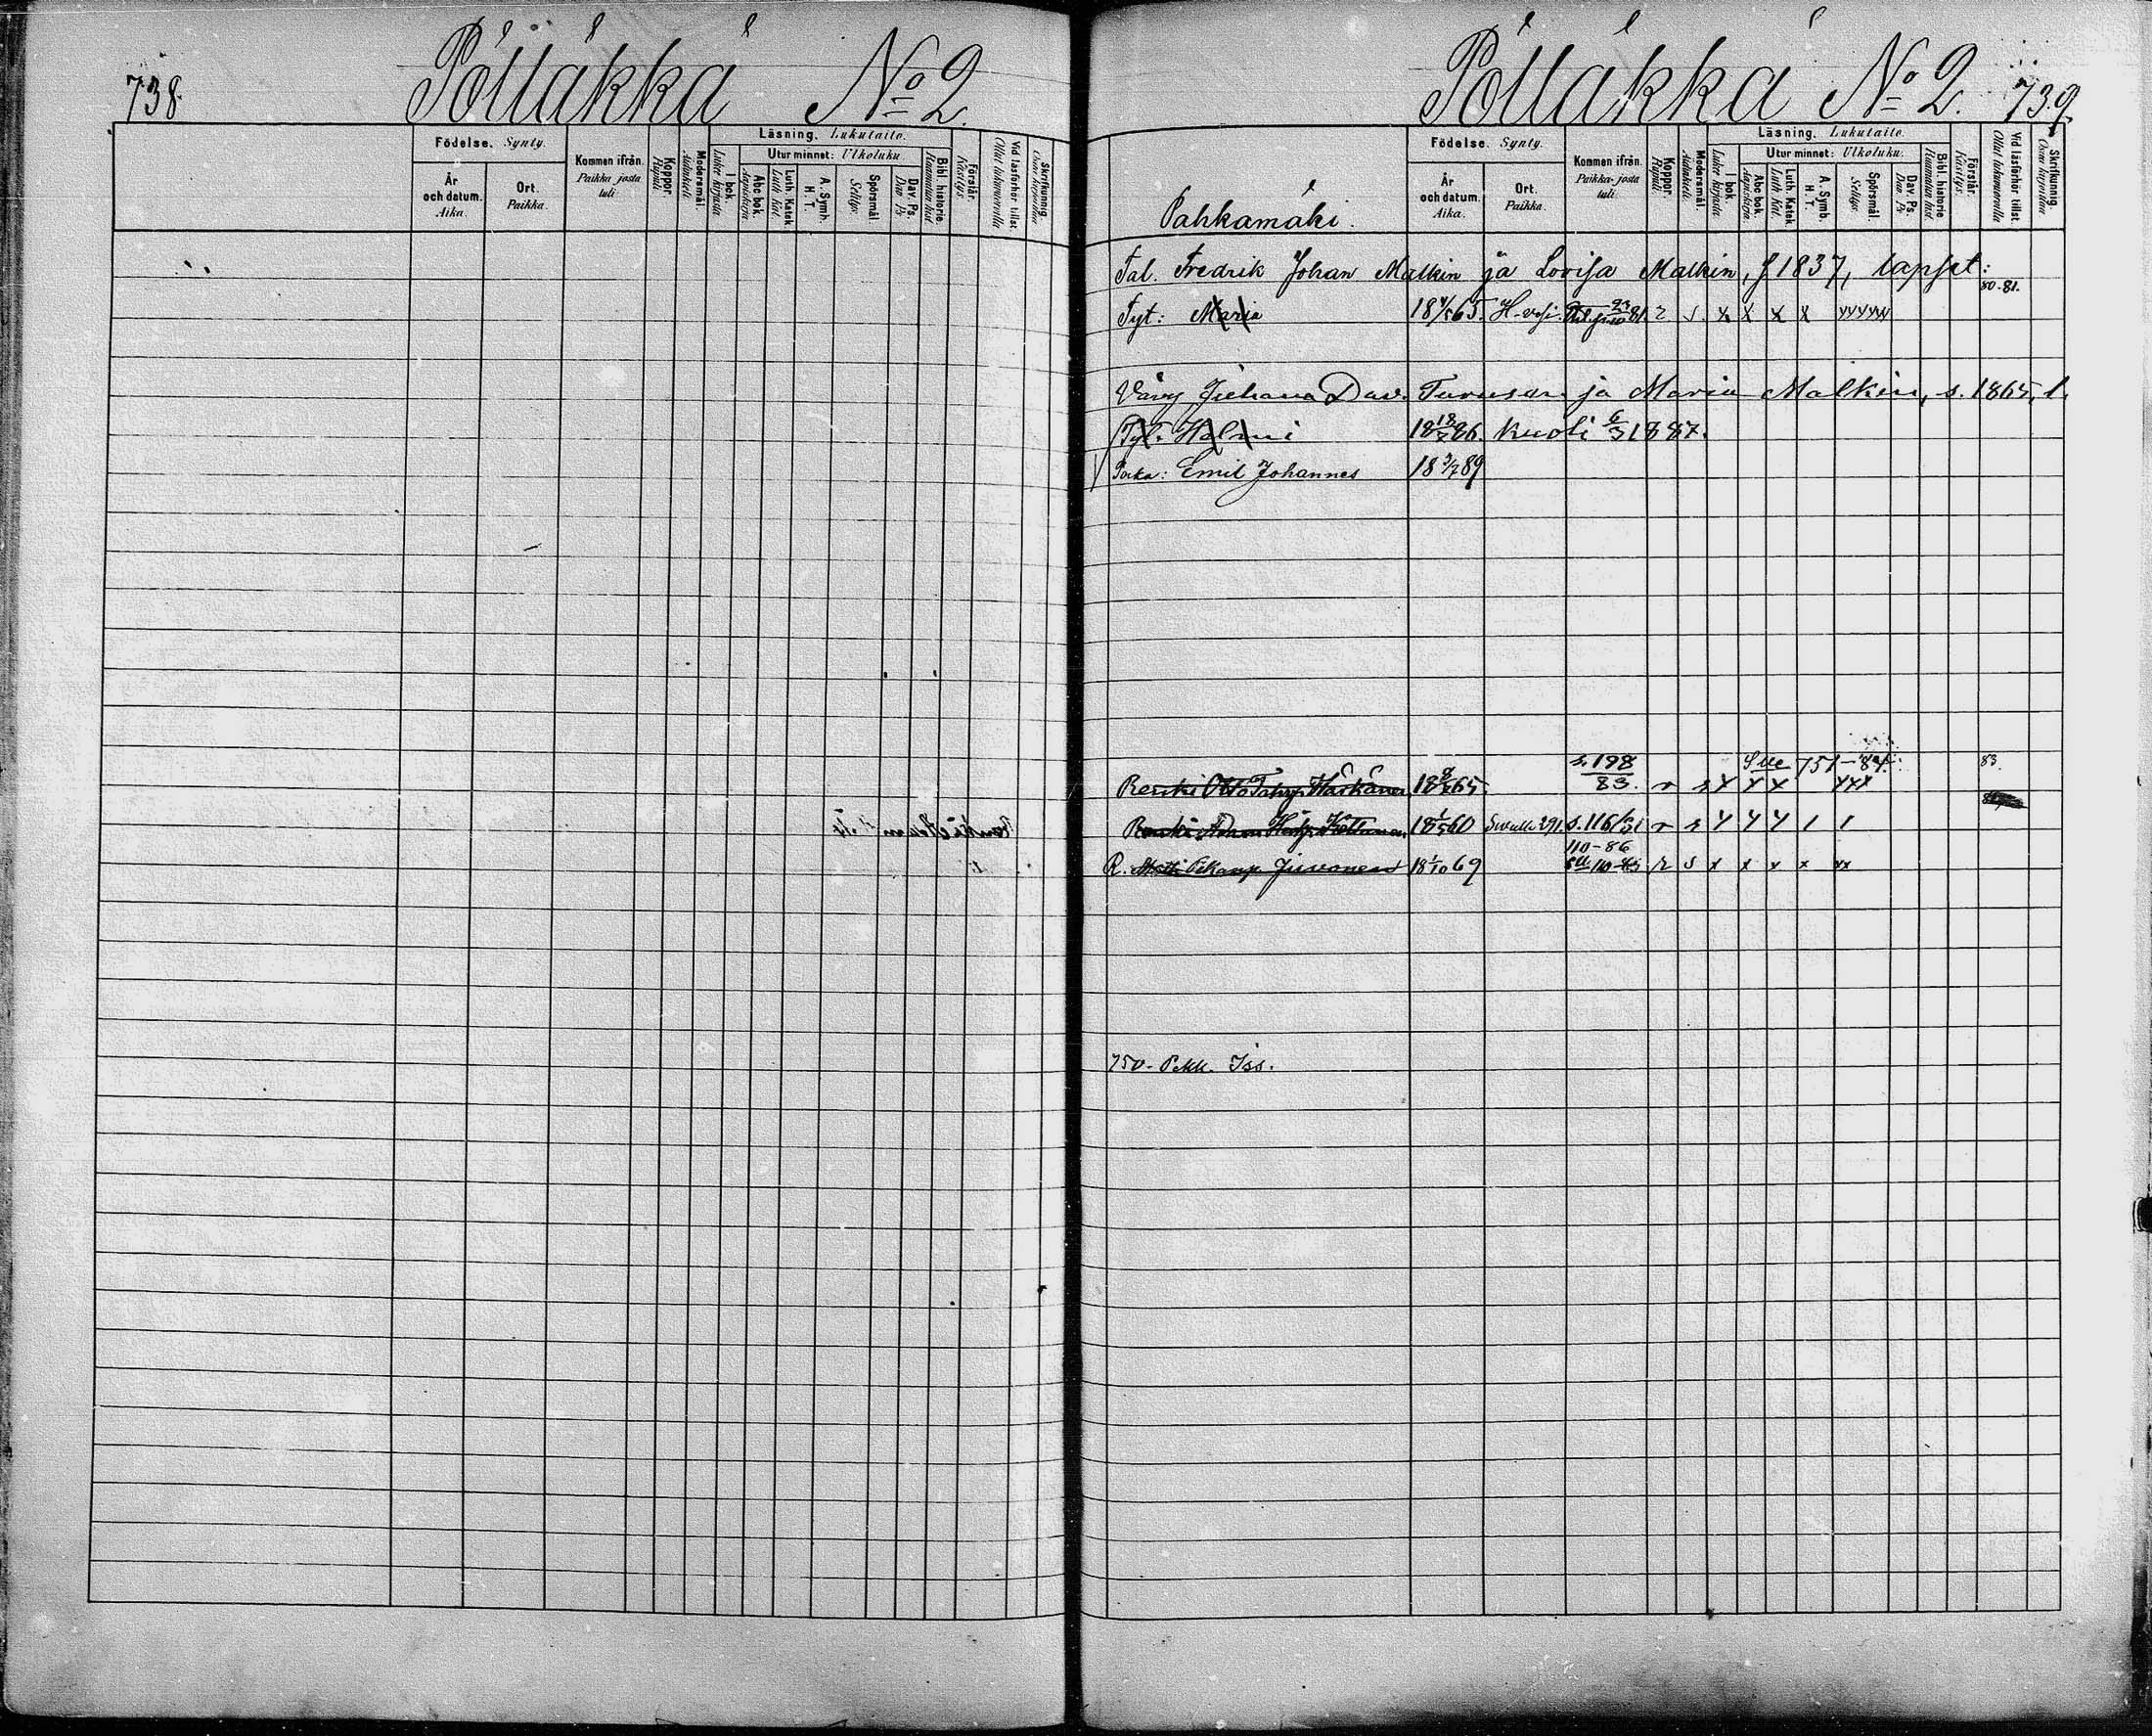 738. Pölläkkä No 2.
Födelse. Synty.
År och datum. Aika.
Ort. Paikka.
Kommen ifrån. Paikka josta tuli.
Koppor. Rupuli
Modersmål. Äidinkieli
Läsning. Lukutaito.
I bok. Lukee kirjasta
Utur minnet: Ulkoluku
Abc bok. Aapiskirja
Luth. Katek. Luth. Kat.
A. Symb. H. T.
Spörsmål. Selitys.
Dav. Ps. Dav. Ps.
Bibl. historie Raamatun hist.
Förstår. Käsitys.
Vid läsförhör tillst. Ollut lukukunnalla
Skrifkunnig. Osaa kirjoittaa
Pölläkkä No 2. 739.
Födelse. Synty.
År och datum. Aika.
Ort. Paikka.
Kommen ifrån. Paikka josta tuli.
Koppor. Rupuli
Modersmål. Äidinkieli
Läsning. Lukutaito.
I bok. Lukee kirjasta
Utur minnet: Ulkoluku.
Abc bok. Aapiskirja
Luth. Katek. Luth. Kat.
A. Symb. H. T.
Spörsmål. Selitys.
Dav. Ps. Dav. Ps.
Bibl. historie Raamatun hist.
Förstår. Käsitys.
Vid läsförhör tillst.
Skrifkunnig. Osaa kirjoittaa
Pahkamäki.
Tal. Fredrik Johan Malkin ja Lovisa Malkin, f 1837, lapset:
80-81.
Tyt: Maria 65. 81. r. s. x x x x xxxxx
Vävy Juhana Dav. Turusen ja Maria Malkin, s. 1865, l.
Tyt. Helmi 18 18/7 86. kuoli 6/3 1887.
Poika: Emil Johannes 18 3/7 89
s. 198 Sue 751-84. 83.
Renki Otto 65. 83. r s x x x xxx
Renki 60 s. 116 r s
110-86
R. Matti Juvonen 18 1/10 69 110-85 r s x x x x xx
750. Pekk. Iss.